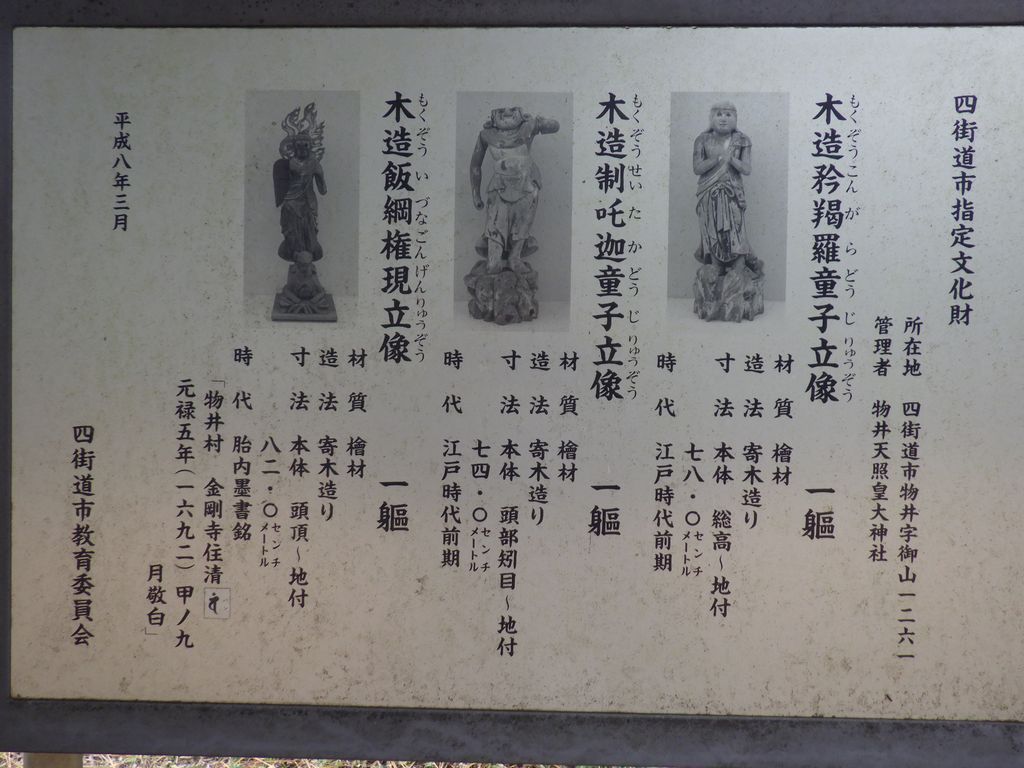 四街道市指定文化財
所在地 四街道市物井字御山一二六一
管理者 物井天照皇大神社
木造矜羯羅童子立像 一軀
もくぞうこんがらどうじりゅうぞう
材質 檜材
造法 寄木造り
寸法 本体 総高～地付
七八・〇センチメートル
時代 江戸時代前期
木造制吒迦童子立像 一軀
もくぞうせいたかどうじりゅうぞう
材質 檜材
造法 寄木造り
寸法 本体 頭部矧目～地付
七四・〇センチメートル
時代 江戸時代前期
木造飯綱権現立像 一軀
もくぞういづなごんげんりゅうぞう
材質 檜材
造法 寄木造り
寸法 本体 頭頂～地付
八二・〇センチメートル
時代 胎内墨書銘
「物井村 金剛寺住清
元禄五年（一六九二）甲ノ九
月敬白」
平成八年三月
四街道市教育委員会